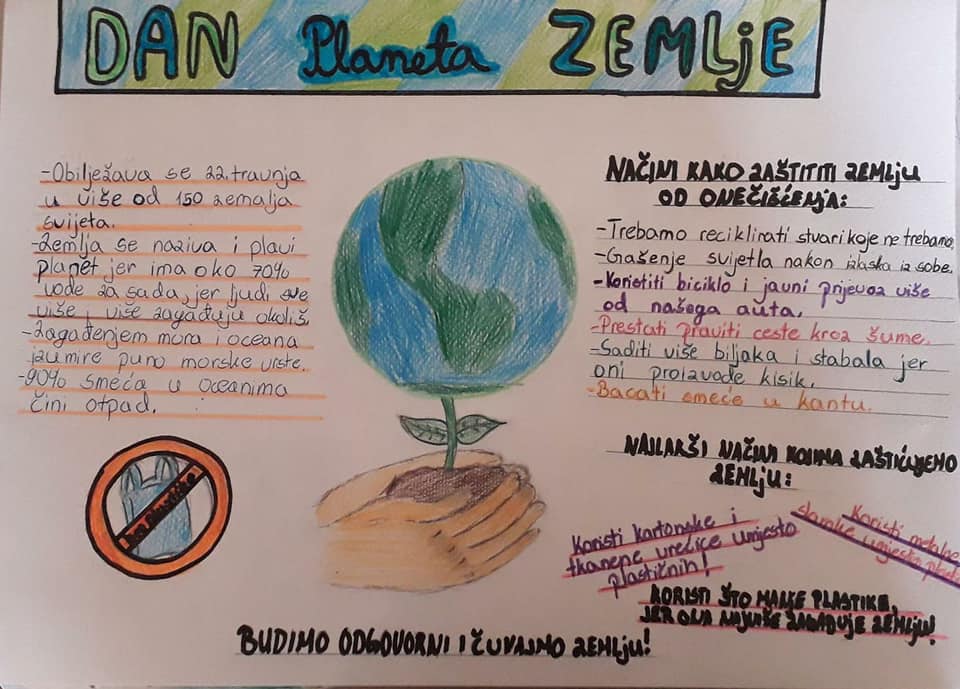 DAN Planeta ZEMLJE
-Obilježava se 22. travnja
u više od 150 zemalja
svijeta.
-Zemlja se naziva i plavi
planet jer ima oko 70%
vode za sada, jer ljudi sve
više i više zagađuju okoliš.
-Zagađenjem mora i oceana
izumire puno morske vrste.
-90% smeća u oceanima
čini otpad.
Bez plastike
NAČINI KAKO ZAŠTITITI ZEMLJU
OD ONEČIŠĆENJA:
-Trebamo reciklirati stvari koje ne trebamo.
-Gašenje svijetla nakon izlaska iz sobe.
-Koristiti biciklo i javni prijevoz više
od našega auta.
-Prestati praviti ceste kroz šume.
-Saditi više biljaka i stabala jer
oni proizvode kisik.
-Bacati smeće u kantu.
NAJLAKŠI NAČINI KOJIMA ZAŠTIĆUJEMO
ZEMLJU:
Koristi kartonske i
tkanene vrećice umjesto
plastičnih!
Koristi metalne
slamke umjesto
KORISTI ŠTO MANJE PLASTIKE,
JER ONA NAJVIŠE ZAGAĐUJE ZEMLJU!
BUDIMO ODGOVORNI I ČUVAJMO ZEMLJU!